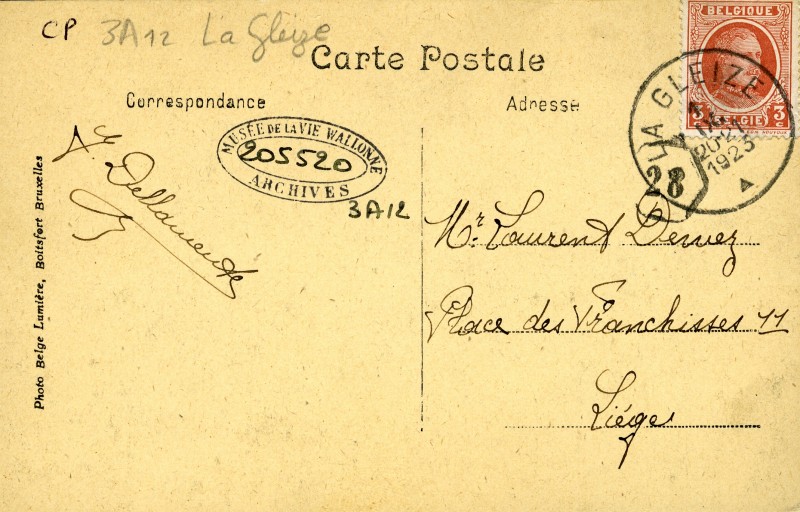 CP 3A12 La Gleize
Carte Postale
Correspondance
Adresse
BELGIQUE
3c 3c
BELGIE
LA GLEIZE
20-21
1923
28
MUSÉE DE LA VIE WALLONNE
205520
ARCHIVES
3A12
Mr. Laurent Dewez
Place des Franchisses 11
Liége
Photo Belge Lumière, Boitsfort Bruxelles